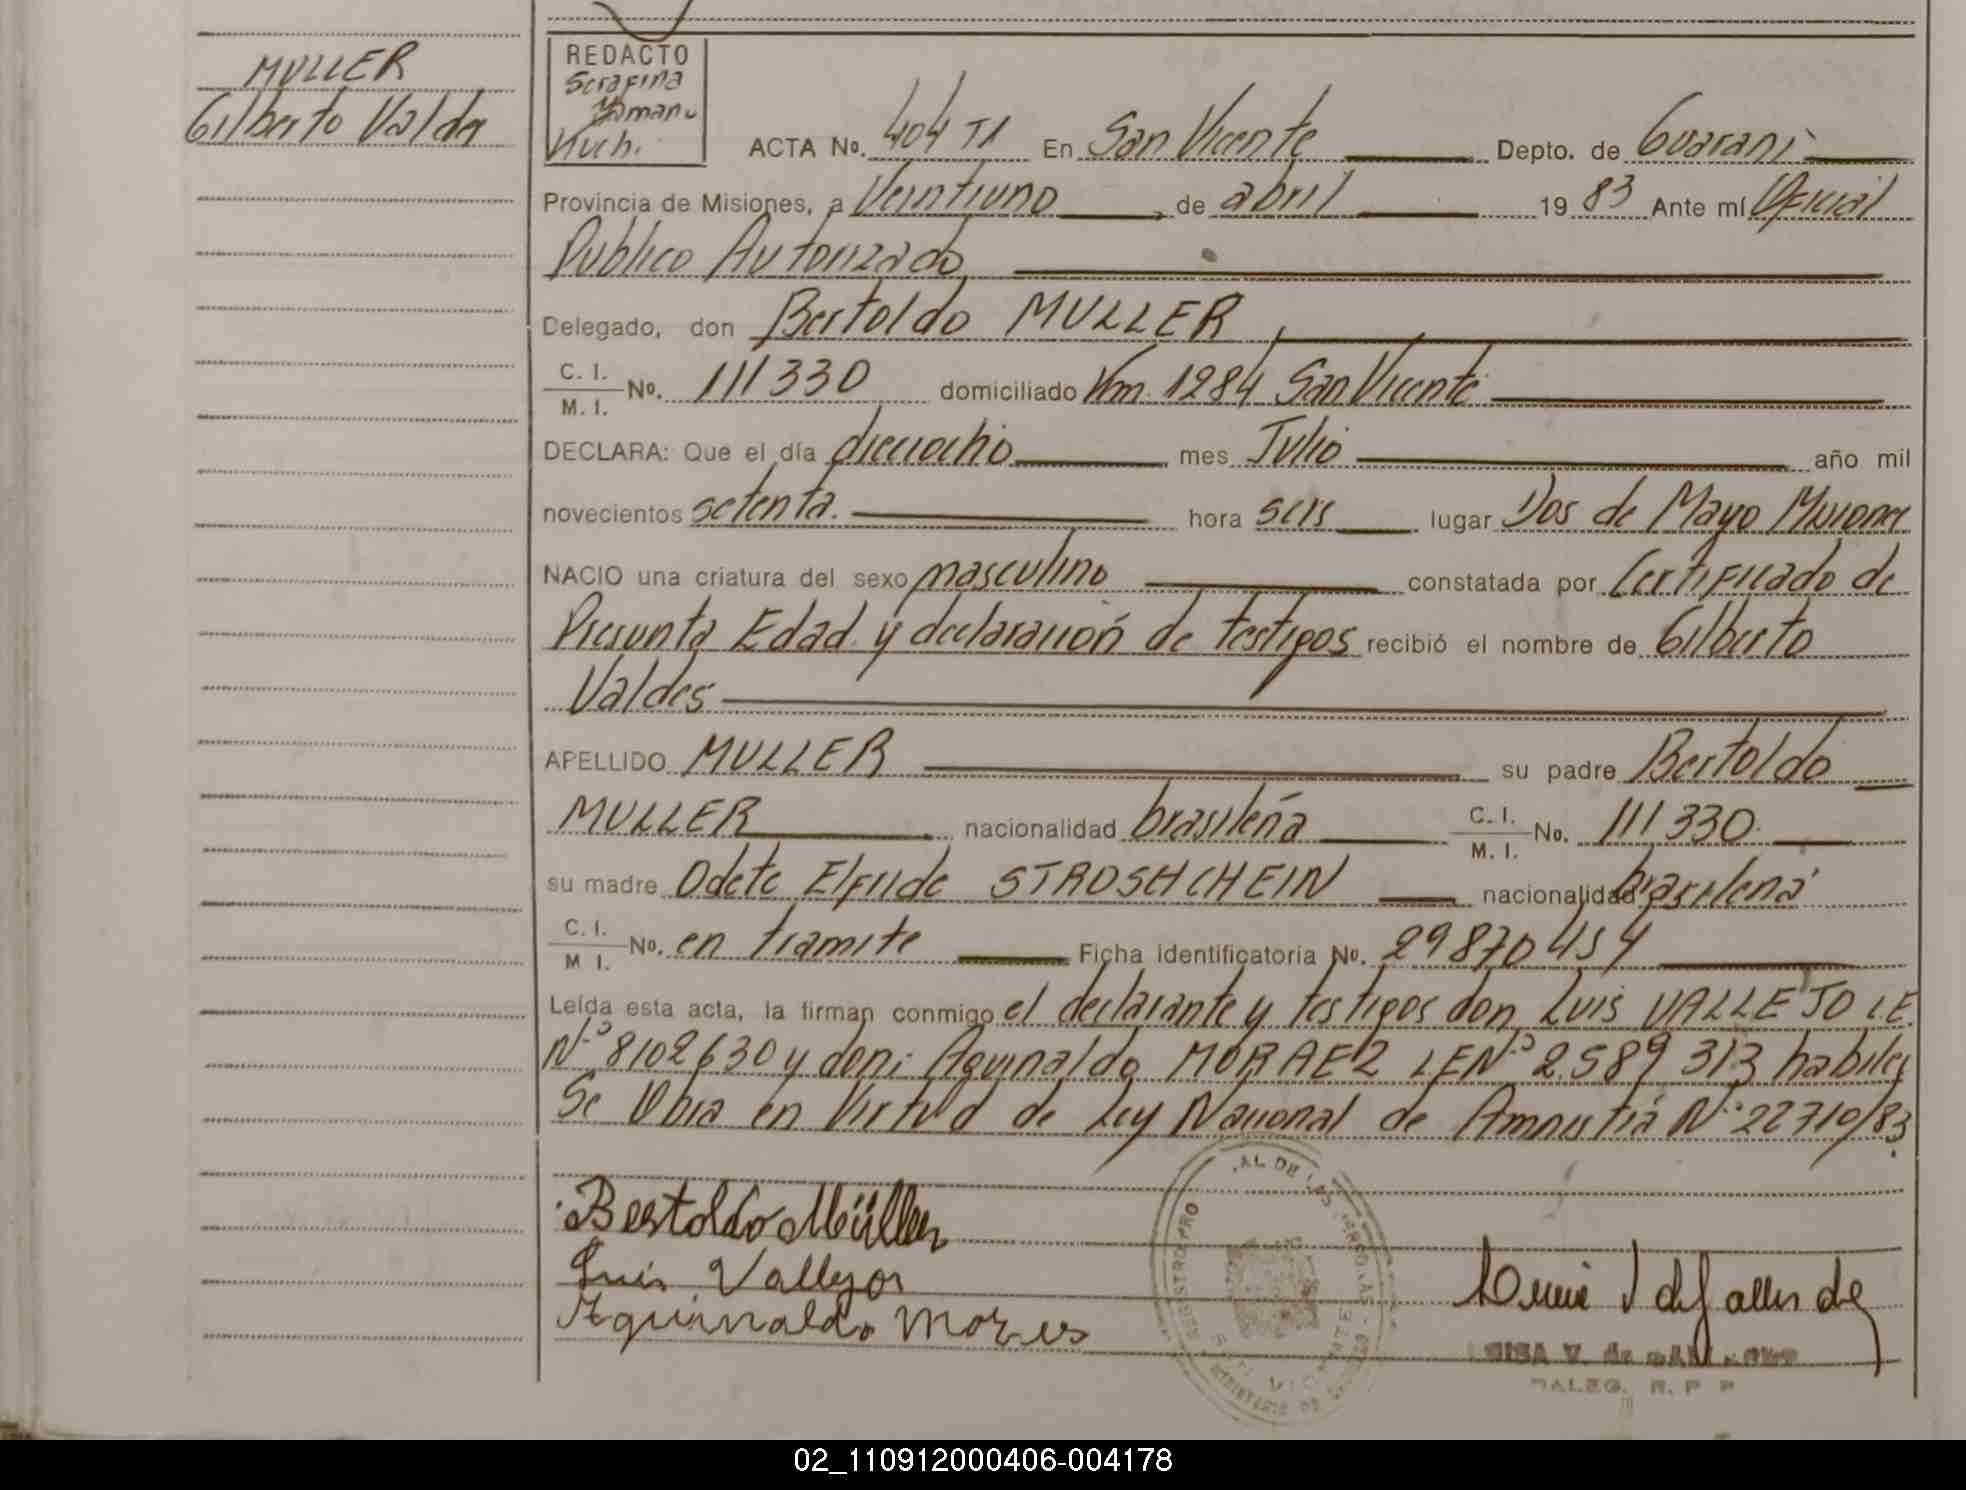 MULLER
Gilberto Valdes
REDACTO
Serafina
Kuch.
ACTA No. 404 T1 En San Vicente Depto. de Guarani
Provincia de Misiones, a Veintiuno de abril 19 83 Ante mí Oficial
Publico Autorizado
Delegado, don Bertoldo MULLER
C. I.
M. I. No. 111330 domiciliado Km. 1284 San Vicente
DECLARA: Que el día dieciocho mes Julio año mil
novecientos setenta. hora seis lugar Dos de Mayo Misiones
NACIO una criatura del sexo masculino constatada por Certificado de
Presunta Edad y declaración de testigos recibió el nombre de Gilberto
Valdes
APELLIDO MULLER su padre Bertoldo
MULLER nacionalidad brasileña C. I. M. I. No. 111330.
su madre Odete Elfride STROSHCHEIN nacionalidad brasileña
C. I. M I. No. en tramite Ficha identificatoria No. 29870454
Leída esta acta, la firman conmigo el declarante y testigos don Luis VALLEJO L.E.
N.º 8102630 y don: Aguinaldo MORAEZ LEN.º 2.589 313 habiles
Se labra en Virtud de Ley Nacional de Amnistia N.º 22710/83
Bertoldo Müller
Luis Vallejos
Aguinaldo
DALEG. R. P P
02_110912000406-004178